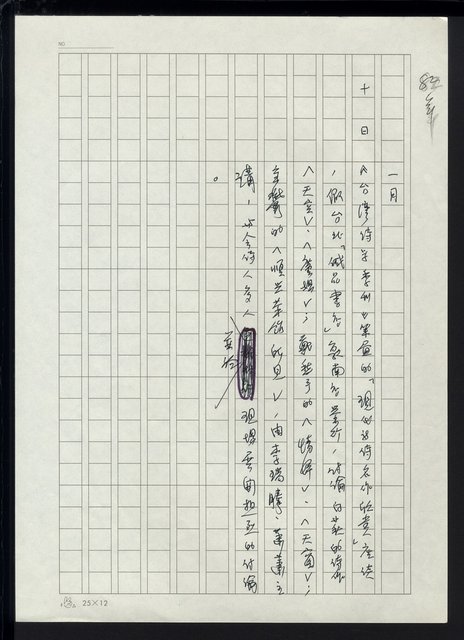 NO.
82年
一月
十日
《台灣詩學季刊》策畫的「現代詩名作欣賞」座談
,假台北「誠品書店」敦南店舉行,討論白萩的詩作
〈天空〉、〈雁〉;鄭愁予的〈情婦〉、〈天窗〉;
的〈順興茶館所見〉,由李瑞騰、蕭蕭主
講,與會詩人多人現場展開熱烈的討論
。
25×12